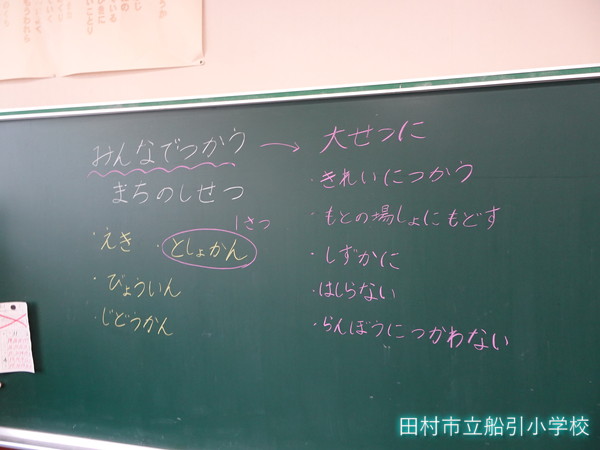 みんなでつかう → 大せつに
まちのしせつ
1さつ
・えき ・としょかん
・びょういん
・じどうかん
・きれいにつかう
・もとの場しょにもどす
・しずかに
・はしらない
・らんぼうにつかわない
田村市立船引小学校